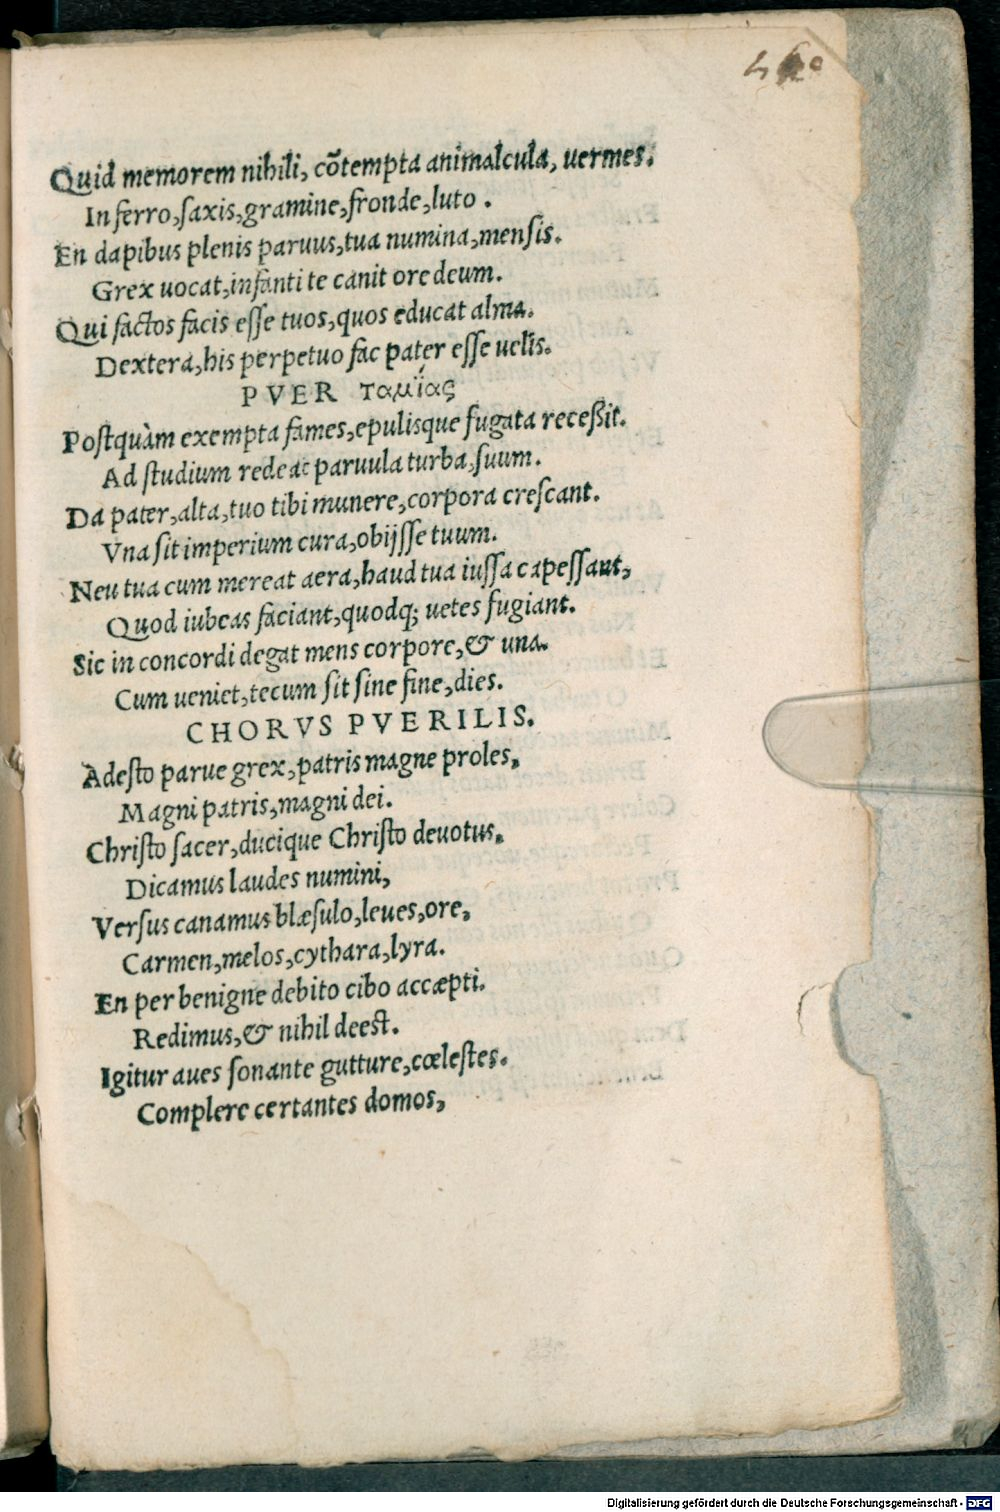 Quid memorem nihili, cõtempta animalcula, uermes.
In ferro, ſaxis, gramine, fronde, luto.
En dapibus plenis paruus, tua numina, menſis.
Grex uocat, infanti te canit ore deum.
Qui factos facis eſſe tuos, quos educat alma.
Dextera, his perpetuo fac pater eſſe uelis.
PVER ταμίας
Poſtquàm exempta fames, epulisque fugata receßit.
Ad ſtudium rede ac paruula turba, ſuum.
Da pater, alta, tuo tibi munere, corpora creſcant.
Vna ſit imperium cura, obijſſe tuum.
Neu tua cum mereat aera, haud tua iuſſa capeſſant,
Quod iubeas faciant, quodq; uetes fugiant.
Sic in concordi degat mens corpore, & una.
Cum ueniet, tecum ſit ſine fine, dies.
CHORVS PVERILIS.
Adeſto parue grex, patris magne proles,
Magni patris, magni dei.
Chriſto ſacer, ducique Chriſto deuotus,
Dicamus laudes numini,
Verſus canamus blæſulo, leues, ore,
Carmen, melos, cythara, lyra.
En per benigne debito cibo accæpti.
Redimus, & nihil deeſt.
Igitur aues ſonante gutture, cœleſtes.
Complere certantes domos,
Digitalisierung gefördert durch die Deutsche Forschungsgemeinschaft - DFG